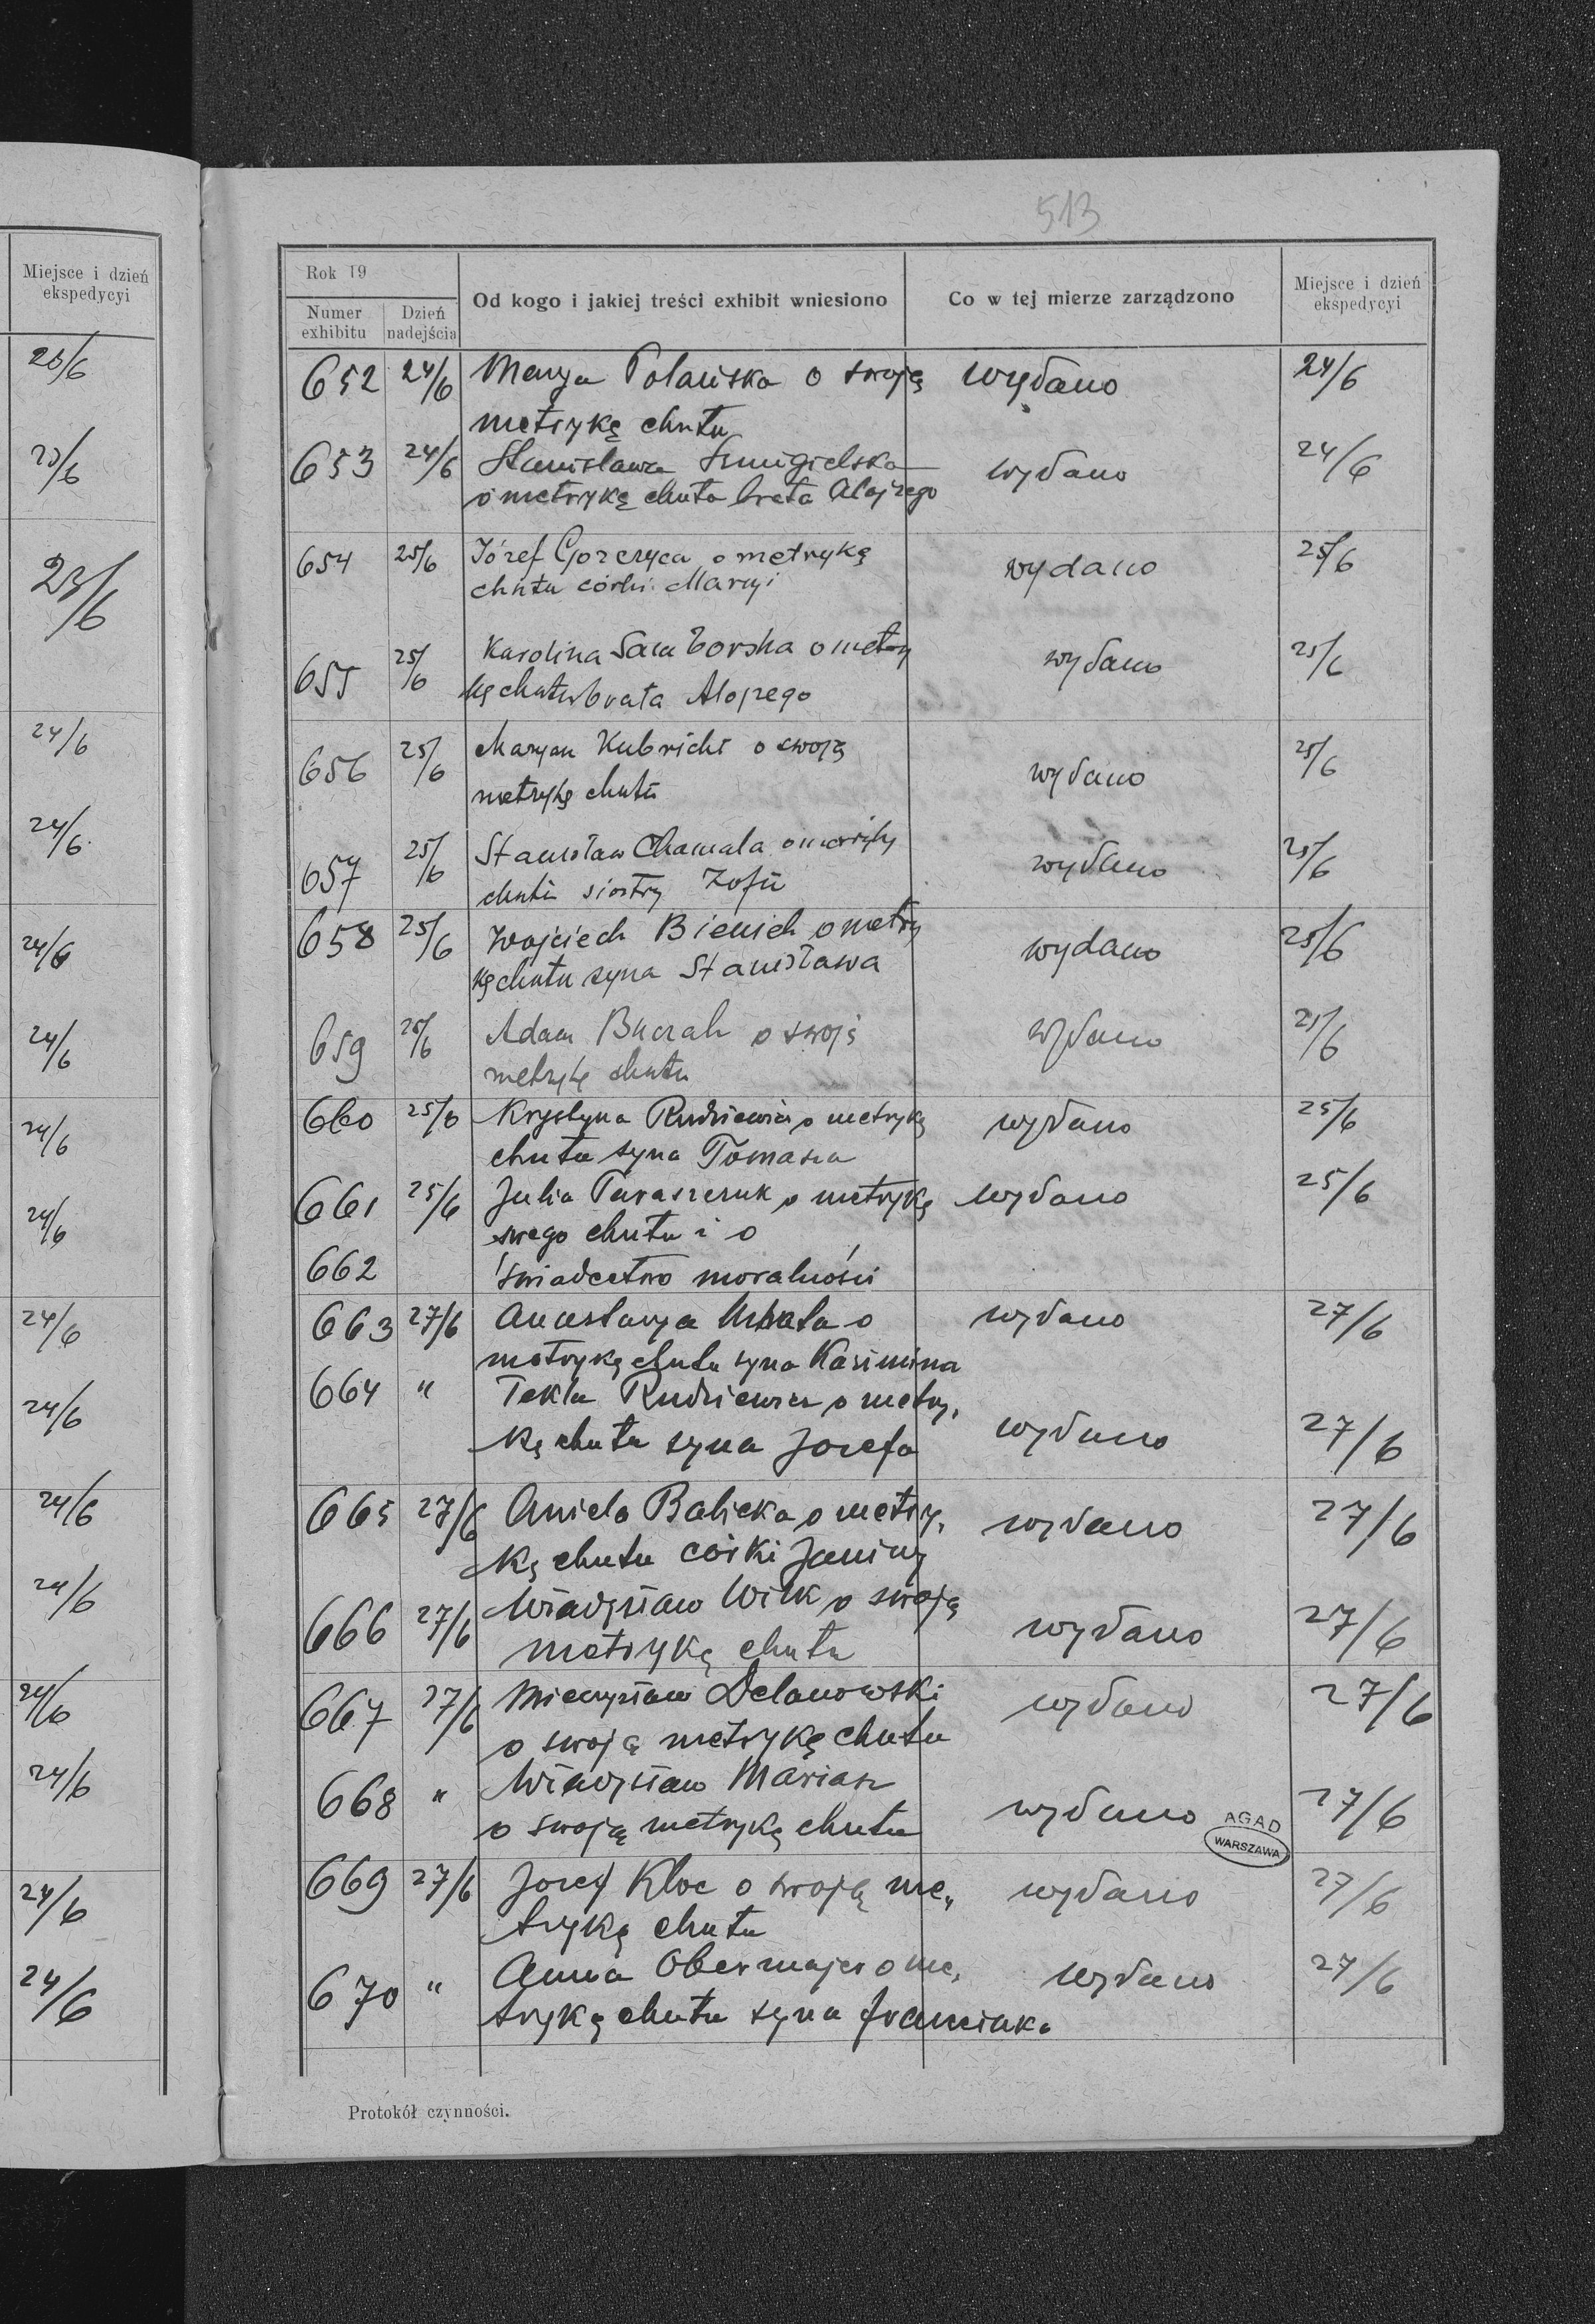 Miejsce i dzień
ekspedycyi
23/6
23/6
23/6
24/6
24/6
24/6
24/6
24/6
24/6
24/6
24/6
24/6
24/6
24/6
24/6
24/6
24/6
513
Rok 19
Numer exhibitu
Dzień nadejścia
Od kogo i jakiej treści exhibit wniesiono
Co w tej mierze zarządzono
Miejsce i dzień ekspedycyi
652 24/6 Marya Polańska o swoją wydano 24/6
metrykę chrztu
653 24/6 Stanisława Smigielska wydano 24/6
o metrykę chrztu brata Alojzego
654 25/6 Józef Gorczyca o metrykę wydano 25/6
chrztu córki Maryi
655 25/6 Karolina Samborska o metry wydano 25/6
kę chrztu brata Alojzego
656 25/6 Maryan Kubricht o swoją wydano 25/6
metrykę chrztu
657 25/6 Stanisław Chamala o metrykę wydano 25/6
chrztu siostry Zofii
658 25/6 Wojciech Bieniek o metry wydano 25/6
kę chrztu syna Stanisława
659 25/6 Adam Buczak o swoją wydano 25/6
metrykę chrztu
660 25/6 Krystyna Rudziewicz o metrykę wydano 25/6
chrztu syna Tomasza
661 25/6 Julia Taraszczuk o metrykę wydano 25/6
swego chrztu i o
662 świadectwo moralności
663 27/6 Anastazya o wydano 27/6
metrykę chrztu syna Kazimirza
664 " Tekla Rudziewicz o metry,
kę chrztu syna Józefa wydano 27/6
665 27/6 Aniela Balicka o metry, wydano 27/6
kę chrztu córki Janiny
666 27/6 Władysław Wilk o swoją wydano 27/6
metrykę chrztu
667 27/6 Mieczysław Delanowski wydano 27/6
o swoją metrykę chrztu
668 " Władysław Mariasz wydano 27/6
o swoją metrykę chrztu
AGAD
WARSZAWA
669 27/6 Józef Kloc o swoją me„ wydano 27/6
trykę chrztu
670 " Anna Obermajer o me, wydano 27/6
trykę chrztu syna Franciszka
Protokół czynności.